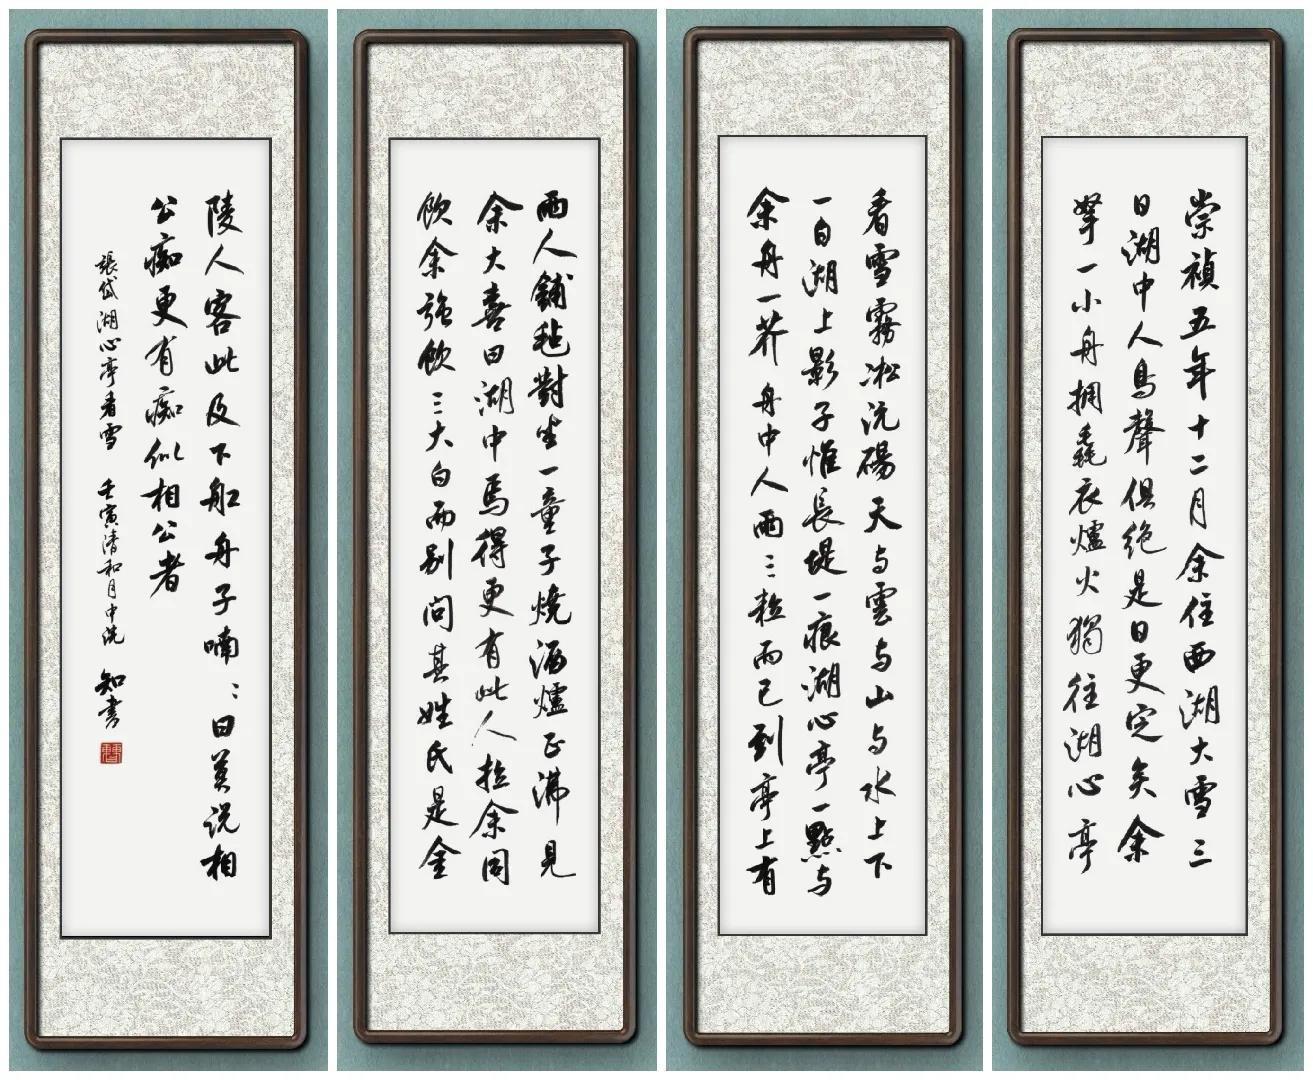 崇禎五年十二月余住西湖大雪三
日湖中人鳥聲俱絕是日更定矣余
拏一小舟拥毳衣爐火獨往湖心亭
看雪霧凇沆碭天与雲与山与水上下
一白湖上影子惟長堤一痕湖心亭一點与
余舟一芥舟中人兩三粒而已到亭上有
兩人鋪毡對坐一童子燒酒爐正沸見
余大喜曰湖中焉得更有此人拉余同
飲余強飲三大白而别問其姓氏是金
陵人客此及下船舟子喃〻曰莫说相
公痴更有痴似相公者
張岱湖心亭看雪 壬寅清和月中浣 知書